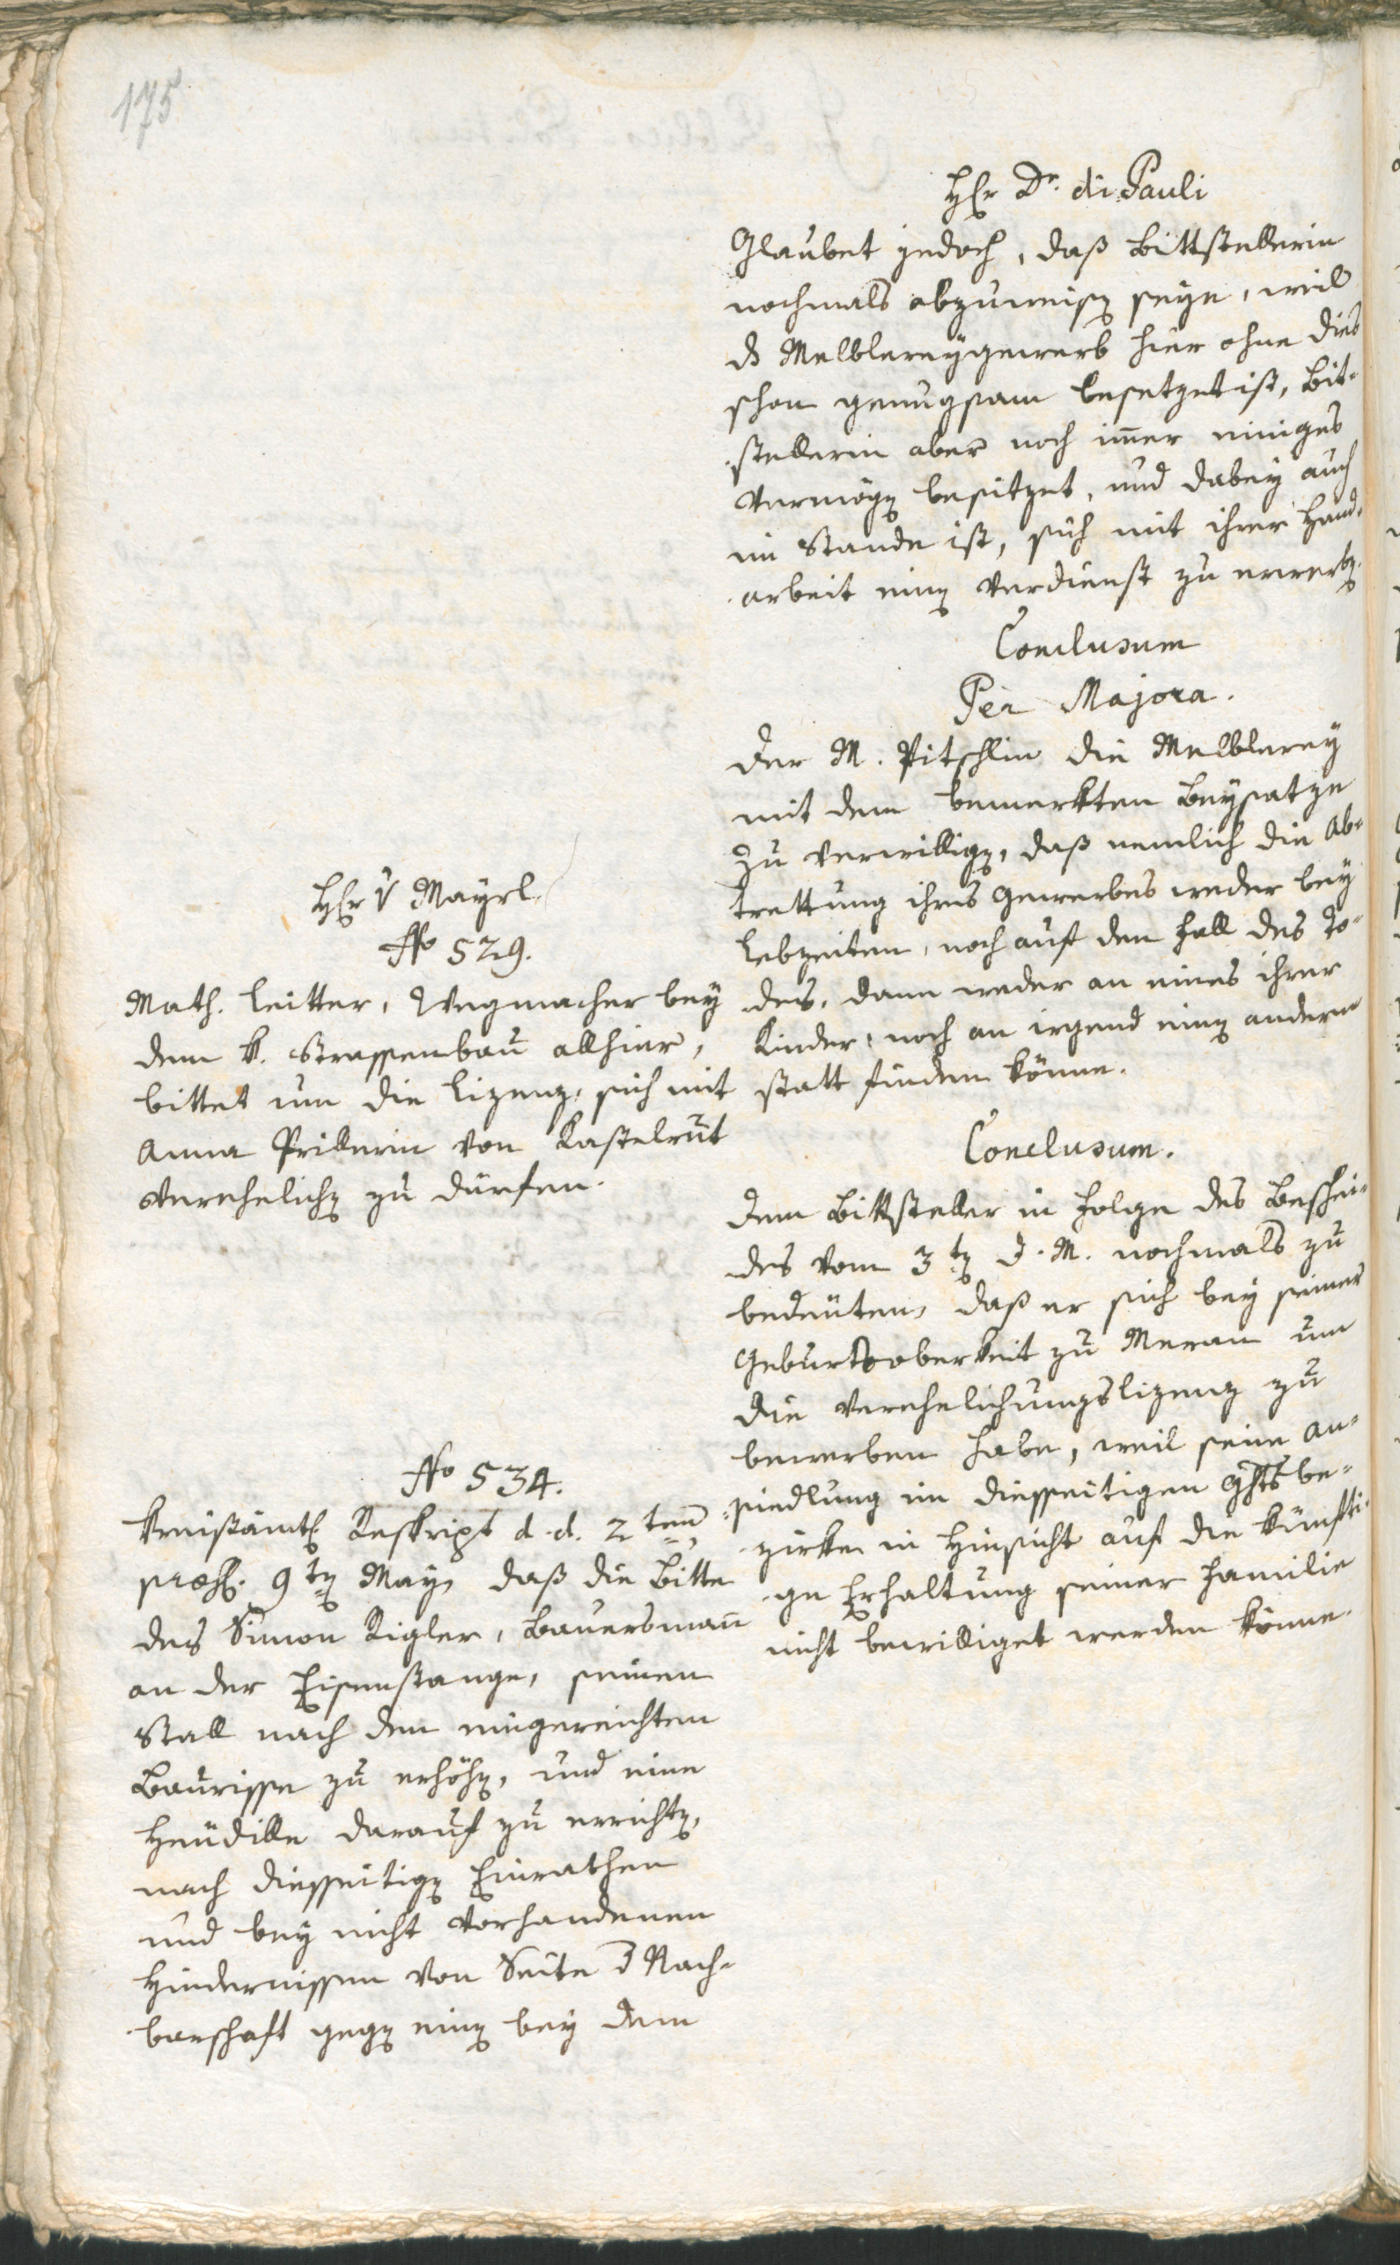 175
H˜r Dr. di Pauli
Glaubet jedoch, daß Bittstellerin
nochmals abzuweisen seye, weil
ds Melblereygewerb hier ohne dies
schon genugsam besetzet ist, Bit-
stellerin aber noch im̅er einiges
Vermögen besitzet, und dabey auch
im Stande ist, sich mit ihrer Hand-
arbeit einen Verdienst zu erwerben.
Conclusum
Per Majora.
Der M. Pitschlin die Melblerey
mit dem bemerkten Beysatze
zu verwilligen, daß nemlich die Ab-
trettung ihres Gewerbes weder bey
Lebzeiten, noch auf den Fall des To-
des, dann weder an eines ihrer
Kinder, noch an irgend einen andern
statt finden könne.
H˜r v Mayrl.
No 529.
Math. Leitter, Wegmacher bey
dem k. Strassenbau allhier,
bittet um die Lizenz, sich mit
Anna Prillerin von Kastelrut
verehelichen zu dürfen.
Conclusum.
Dem Bittsteller in Folge des Beschei-
des vom 3ten d. M. nochmals zu
bedeuten, daß er sich bey seiner
Geburtsoberkeit zu Meran um
die Verehelichungslizenz zu
bewerben habe, weil seine An-
siedlung im diesseitigen Ghtsbe-
zirke in Hinsicht auf die künfti-
ge Erhaltung seiner Familie
nicht bewilliget werden könne.
No 534.
Kreisämtl. Reskript d. d. 2ten
præs. 9ten May, daß die Bitte
des Simon Rigler, Bauersman̅
an der Eisenstange, seinen
Stall nach dem eingereichten
Baurisse zu erhöhen, und eine
Heudille darauf zu errichten,
nach diesseitigen Einrathen
und bey nicht vorhandenen
Hindernissen von Seite d Nach-
barschaft gegen einen bey dem